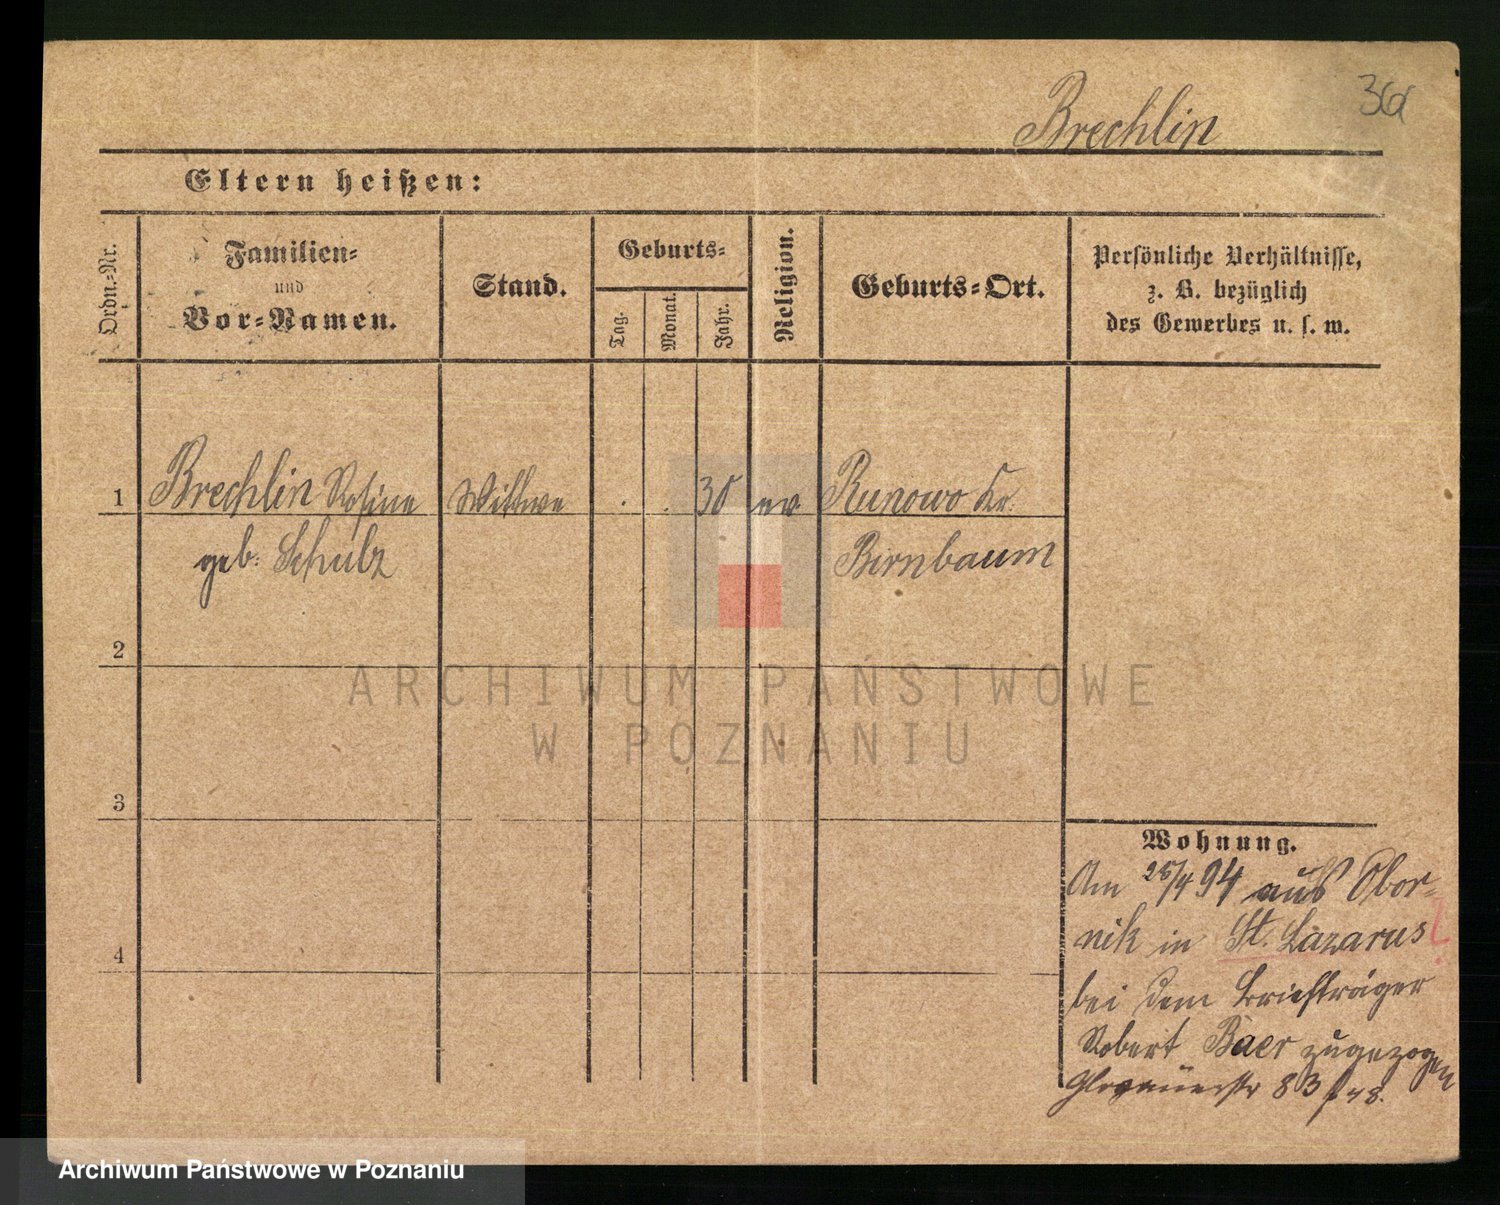 36a
Brechlin
Eltern heißen:
Ordn.-Nr.
Familien-
und
Vor-Namen.
Stand.
Geburts-
Tag.
Monat.
Jahr.
Religion.
Geburts-Ort.
Persönliche Verhältnisse,
z. B. bezüglich
des Gewerbes u. s. w.
1 Brechlin Rosine Wittwe . . 30 ev Runowo Kr.
geb. Schulz Birnbaum
2
ARCHIWUM PAŃSTWOWE
W POZNANIU
3
4
Wohnung.
Am 28/4 94 aus Obor-
nik in St. Lazarus
bei dem Briefträger
Robert Baer zugezogen
Glogauerstr 83
Archiwum Państwowe w Poznaniu